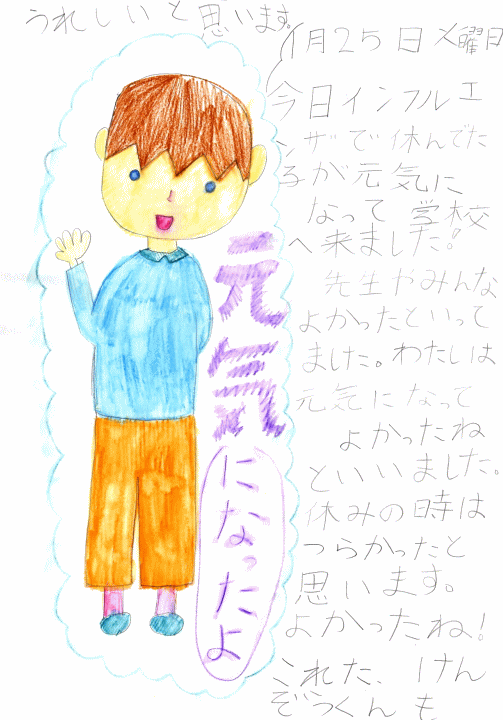 1月25日火曜日
今日インフルエ
ンザで休んでた
子が元気に
なって学校
へ来ました！
先生やみんな
よかったといって
ました。わたしは
元気になって
よかったね
といいました。
休みの時は
つらかったと
思います。
よかったね！
これた、けん
ぞうくんも
うれしいと思います。
元気になったよ